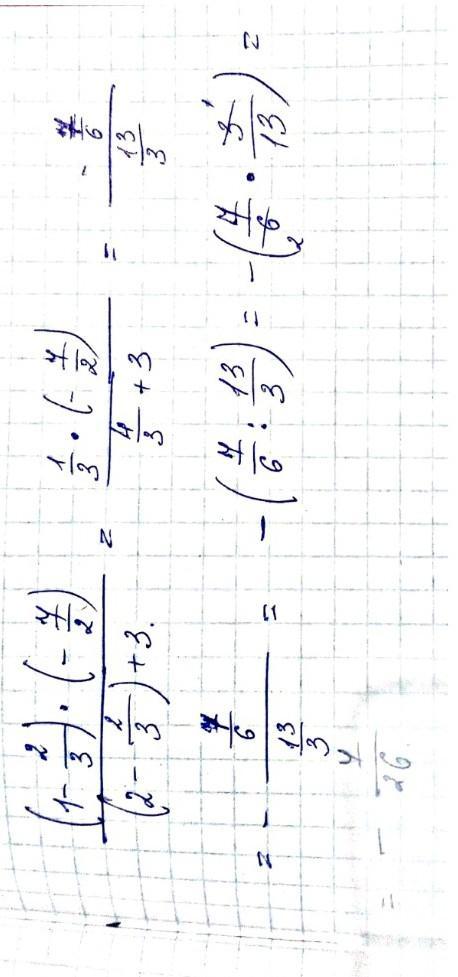 ((1-2/3)·(-7/2))/((2-2/3)+3.) = (1/3·(-7/2))/(4/3+3) = -(7/6)/(13/3)
= -(7/6)/(13/3) = -(7/6:13/3) = -(7/6₂·3¹/13) =
= -7/26